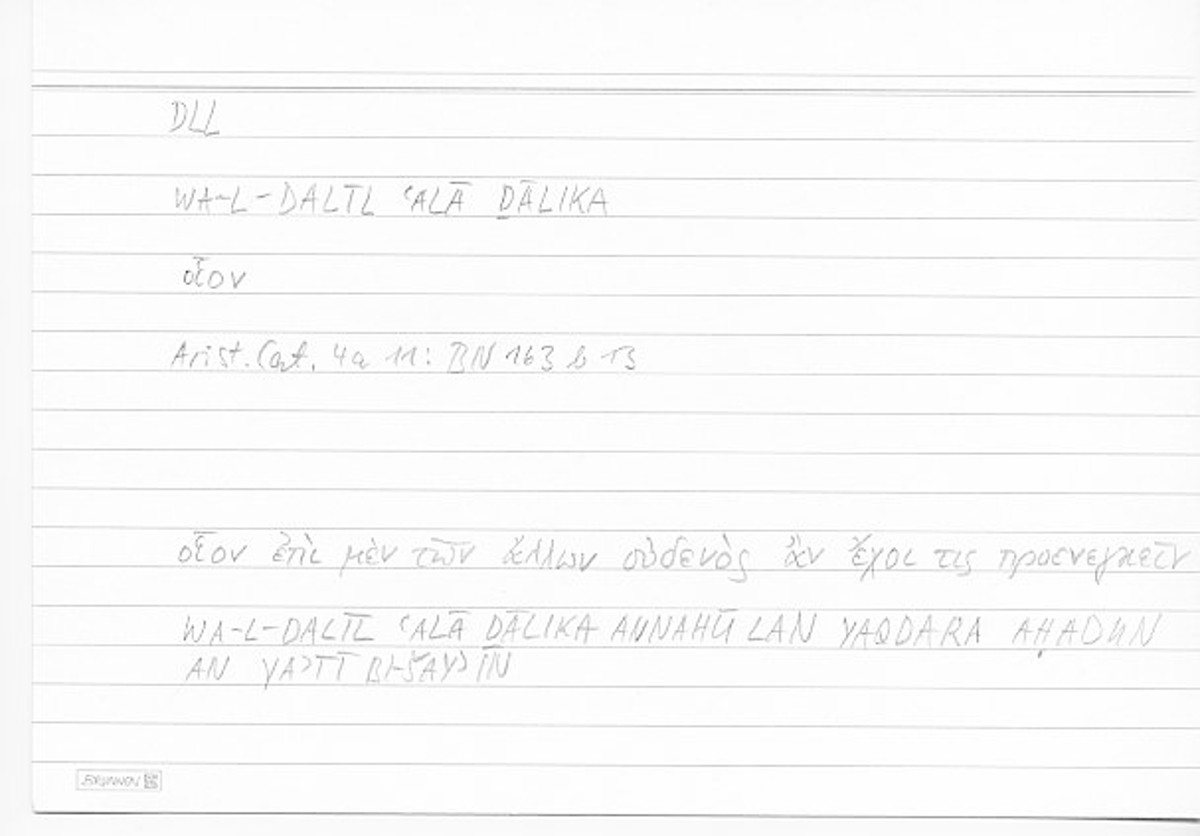 DLL
WA-L-DALĪL ʿALĀ ḎĀLIKA
οἷον
Arist. Cat. 4a 11: BN 163 b 13
οἷον ἐπὶ μὲν τῶν ἄλλων οὐδενὸς ἂν ἔχοι τις προενεγκεῖν
WA-L-DALĪL ʿALĀ ḎĀLIKA ANNAHŪ LAN YAQDARA AḤADUN
AN YAʾTĪ BI-ŠAYʾIN
BRUNNEN